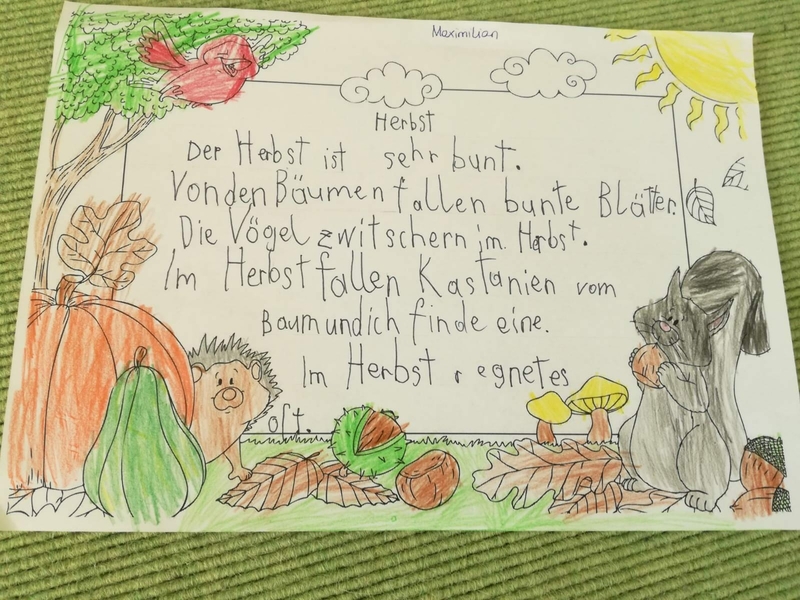 Maximilian
Herbst
Der Herbst ist sehr bunt.
Von den Bäumen fallen bunte Blätter.
Die Vögel zwitschern im Herbst.
Im Herbst fallen Kastanien vom
Baum und ich finde eine.
Im Herbst regnet es
oft.